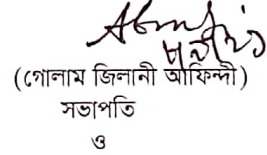 (গোলাম জিলানী আফিন্দী)
সভাপতি
ও